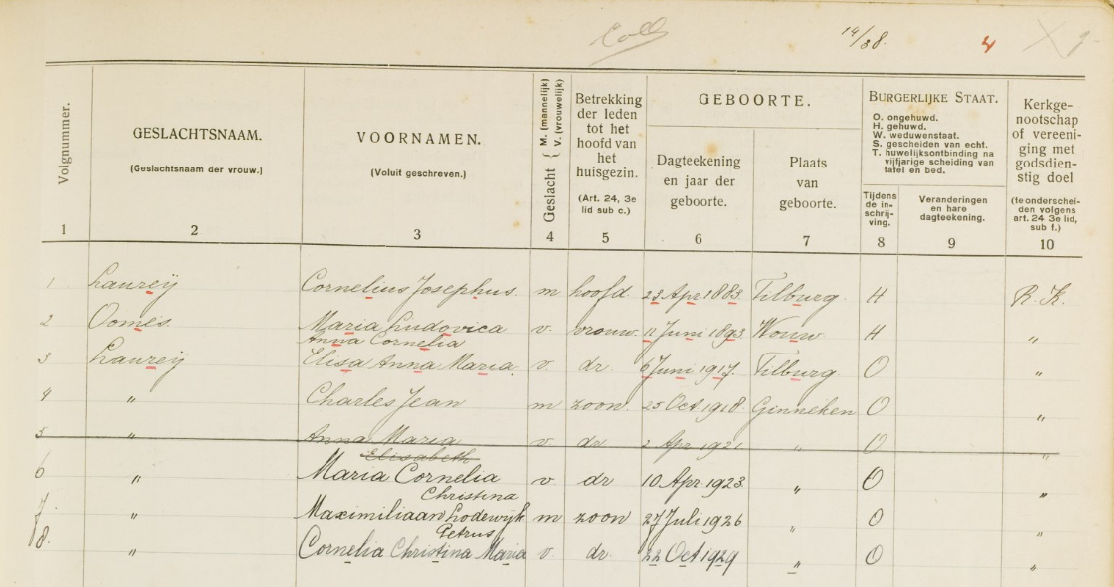 Coll
14/38.
4
Volgnummer.
GESLACHTSNAAM.
(Geslachtsnaam der vrouw.)
VOORNAMEN.
(Voluit geschreven.)
Geslacht { M. (mannelijk) V. (vrouwelijk)
Betrekking
der leden
tot het
hoofd van
het
huisgezin.
(Art. 24, 3e
lid sub c.)
GEBOORTE.
Dagteekening
en jaar der
geboorte.
Plaats
van
geboorte.
BURGERLIJKE STAAT.
O. ongehuwd.
H. gehuwd.
W. weduwenstaat.
S. gescheiden van echt.
T. huwelijksontbinding na
vijfjarige scheiding van
tafel en bed.
Tijdens
de in-
schrij-
ving.
Veranderingen
en hare
dagteekening.
Kerkge-
nootschap
of vereeni-
ging met
godsdien-
stig doel
(te onderschei-
den volgens
art. 24 3e lid,
sub f.)
1 2 3 4 5 6 7 8 9 10
1 Laureÿ Cornelius Josephus. m hoofd 23 Apr 1883. Tilburg. H R.K.
2 Oomes. Maria Ludovica v. vrouw. 11 Juni 1893 Wouw H "
Anna Cornelia
3 Laureÿ Elisa Anna Maria. v. dr. 6 Juni 1917. Tilburg O "
4 " Charles Jean m zoon. 25 Oct 1918. Ginneken O "
5 " Anna Maria v. dr 2 Apr 1921 " O "
Elisabeth
6 " Maria Cornelia v dr 10 Apr 1923 " O "
Christina
7. " Maximiliaan Lodewijk m zoon 27 Juli 1926 " O "
Petrus
8. " Cornelia Christina Maria v. dr. 22 Oct 1929 " O "